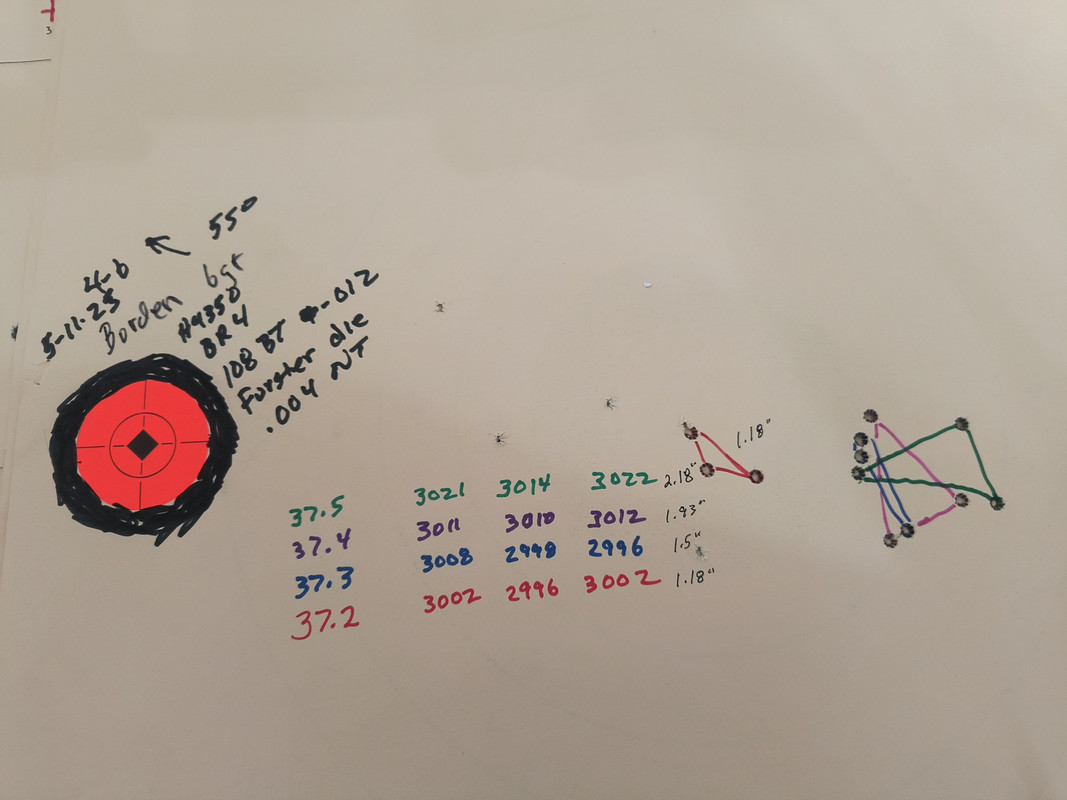 3
4-6 550
5-11-25
Borden 6gt
H4350
BR4
108 BT -012
Forster die
.004 NT
37.5 3021 3014 3022 2.18"
37.4 3011 3010 3012 1.93"
37.3 3008 2998 2996 1.5"
37.2 3002 2996 3002 1.18"
1.18"